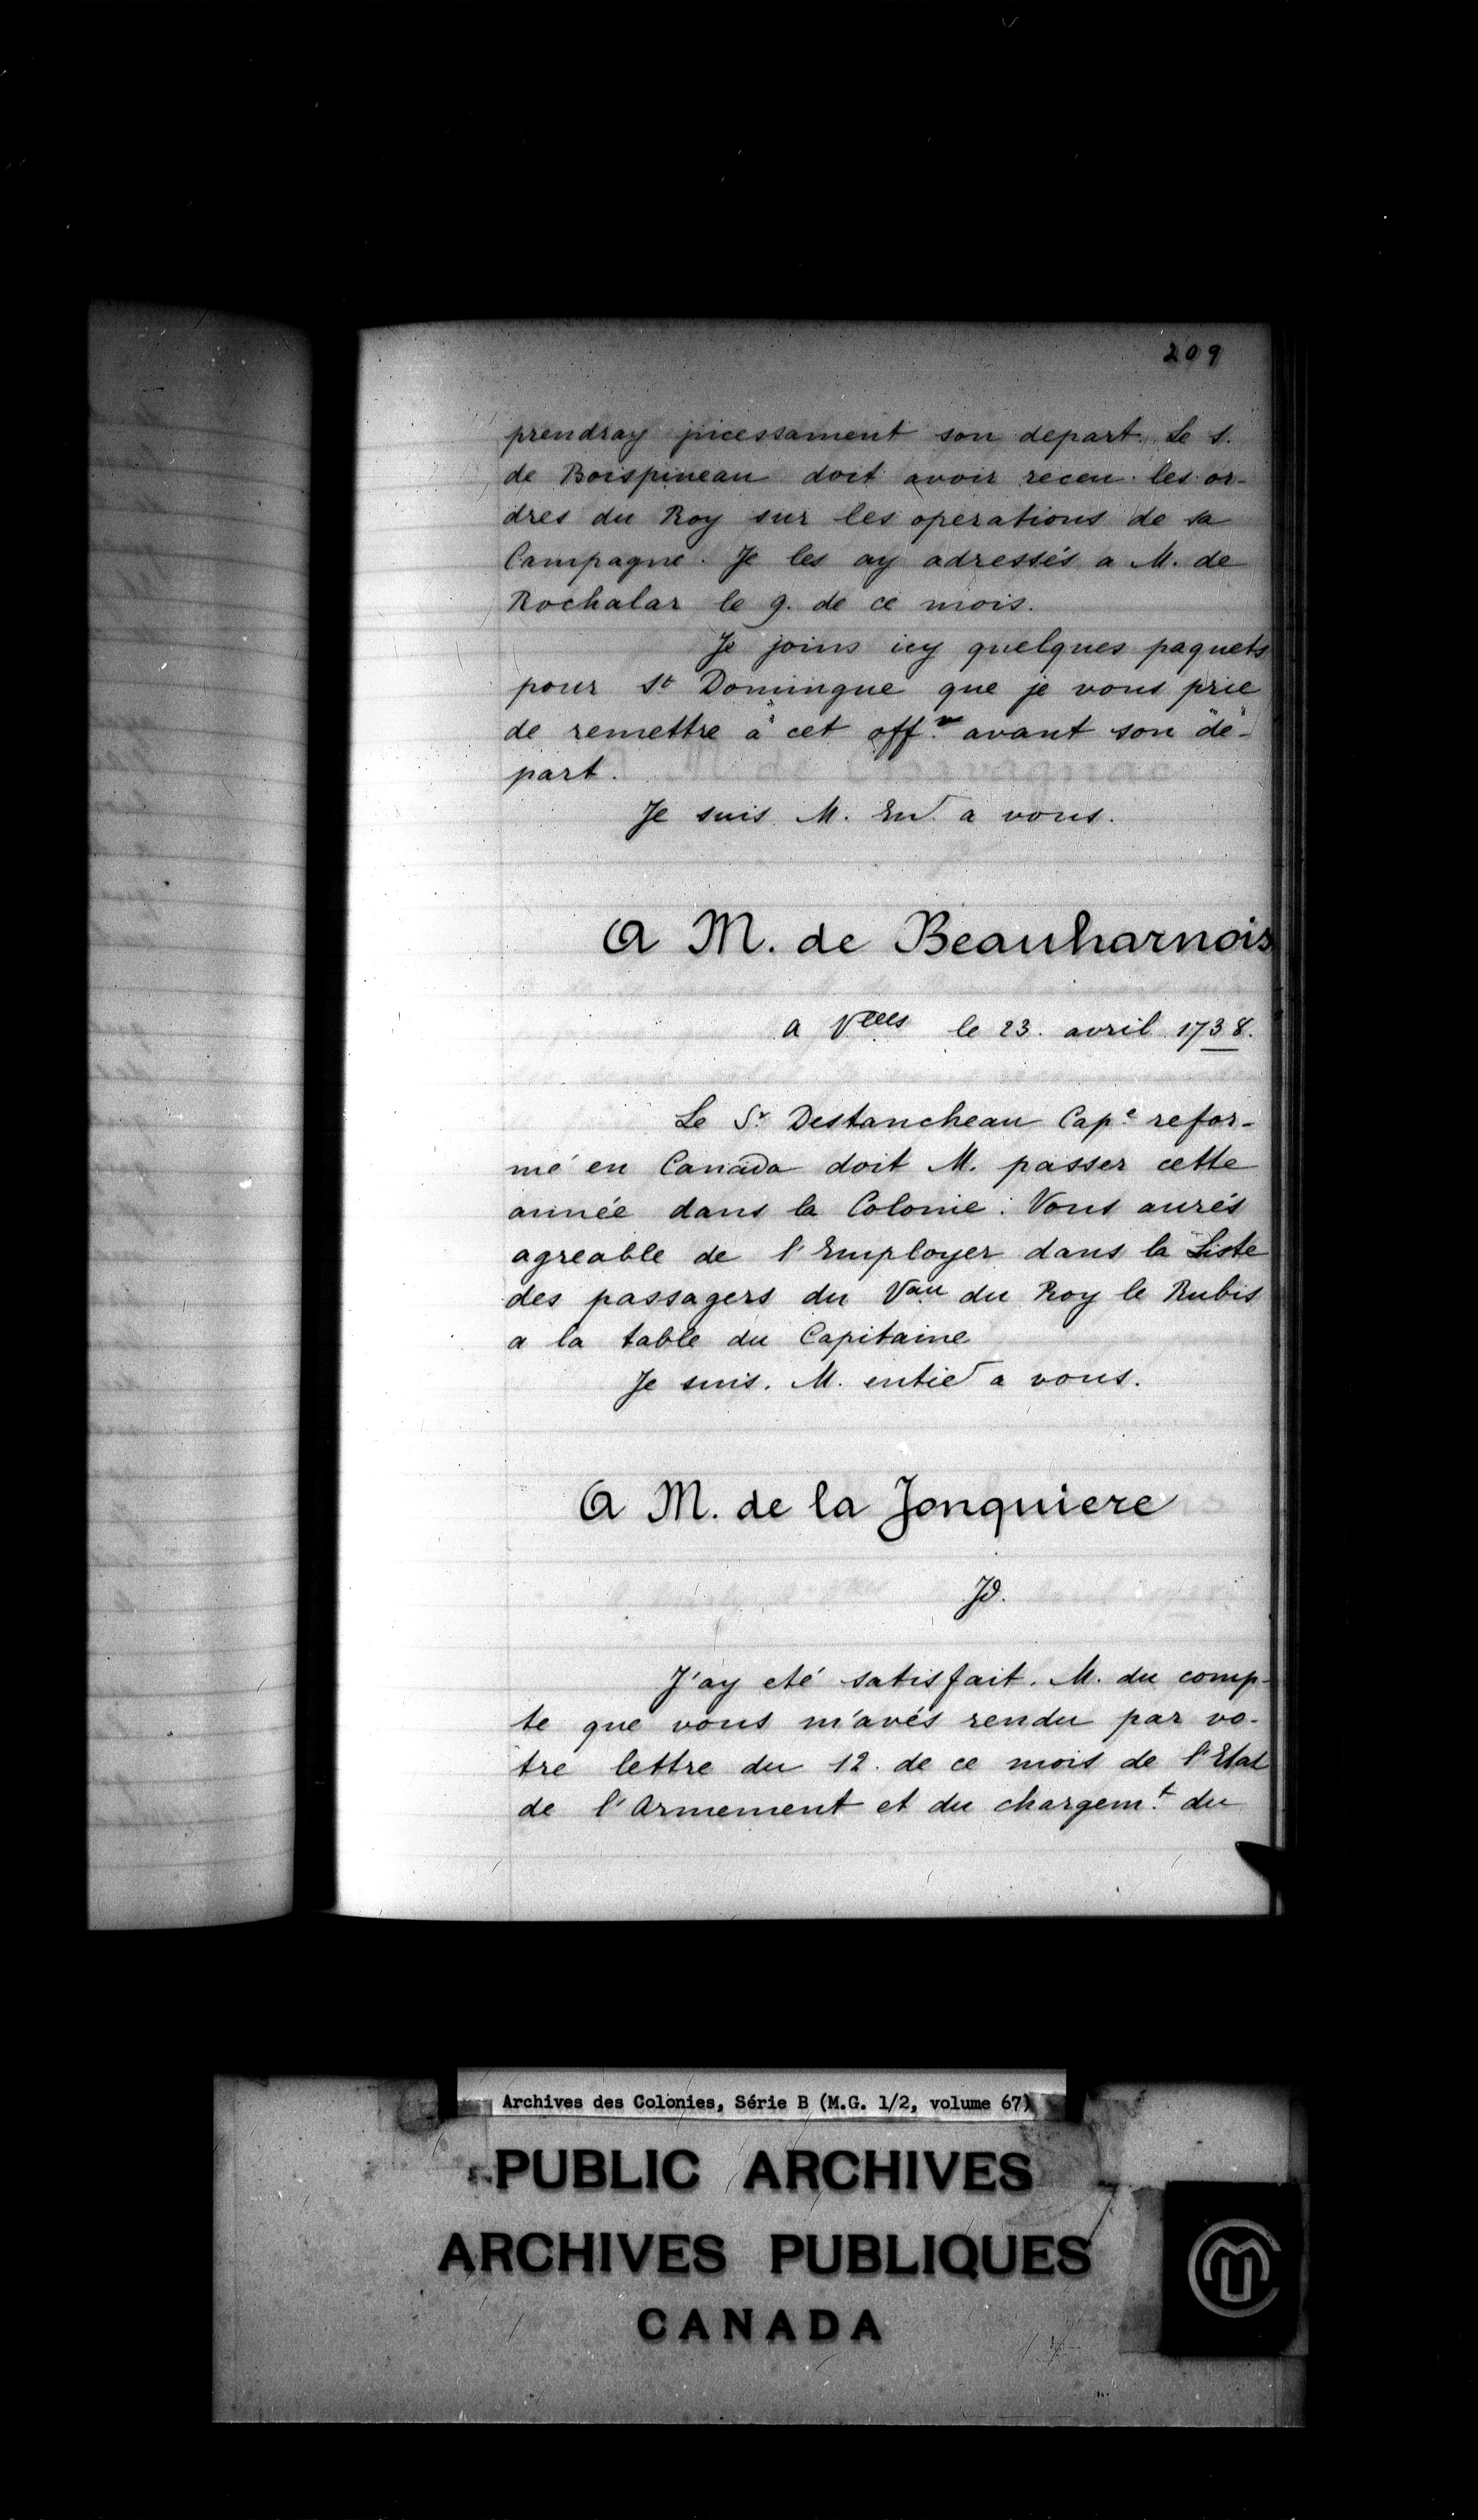 209
prendray incessament son depart. Le S.
de Boispineau doit avoir receu les or-
dres du Roy sur les operations de sa
Campagne. Je les ay adressés a M. de
Rochalar le 9. de ce mois.
Je joins icy quelques paquets
pour St Domingue que je vous prie
de remettre à cet offr. avant son dé-
part.
Je suis M. En. a vous.
A M. de Beauharnois
a Vlles le 23. avril 1738.
Le Sr. Destancheau Cape. refor-
mé en Canada doit M. passer cette
année dans la Colonie. Vous aurés
agreable de l'Employer dans la Liste
des passagers du Vau du Roy le Rubis
a la table du Capitaine
Je suis. M. entie a vous.
A M. de la Jonquiere
Jd.
J'ay eté satisfait. M. du comp-
te que vous m'avés rendu par vo-
tre lettre du 12. de ce mois de l'Etat
de l'Armement et du chargemt. du
Archives des Colonies, Série B (M.G. 1/2, volume 67)
PUBLIC ARCHIVES
ARCHIVES PUBLIQUES
CANADA